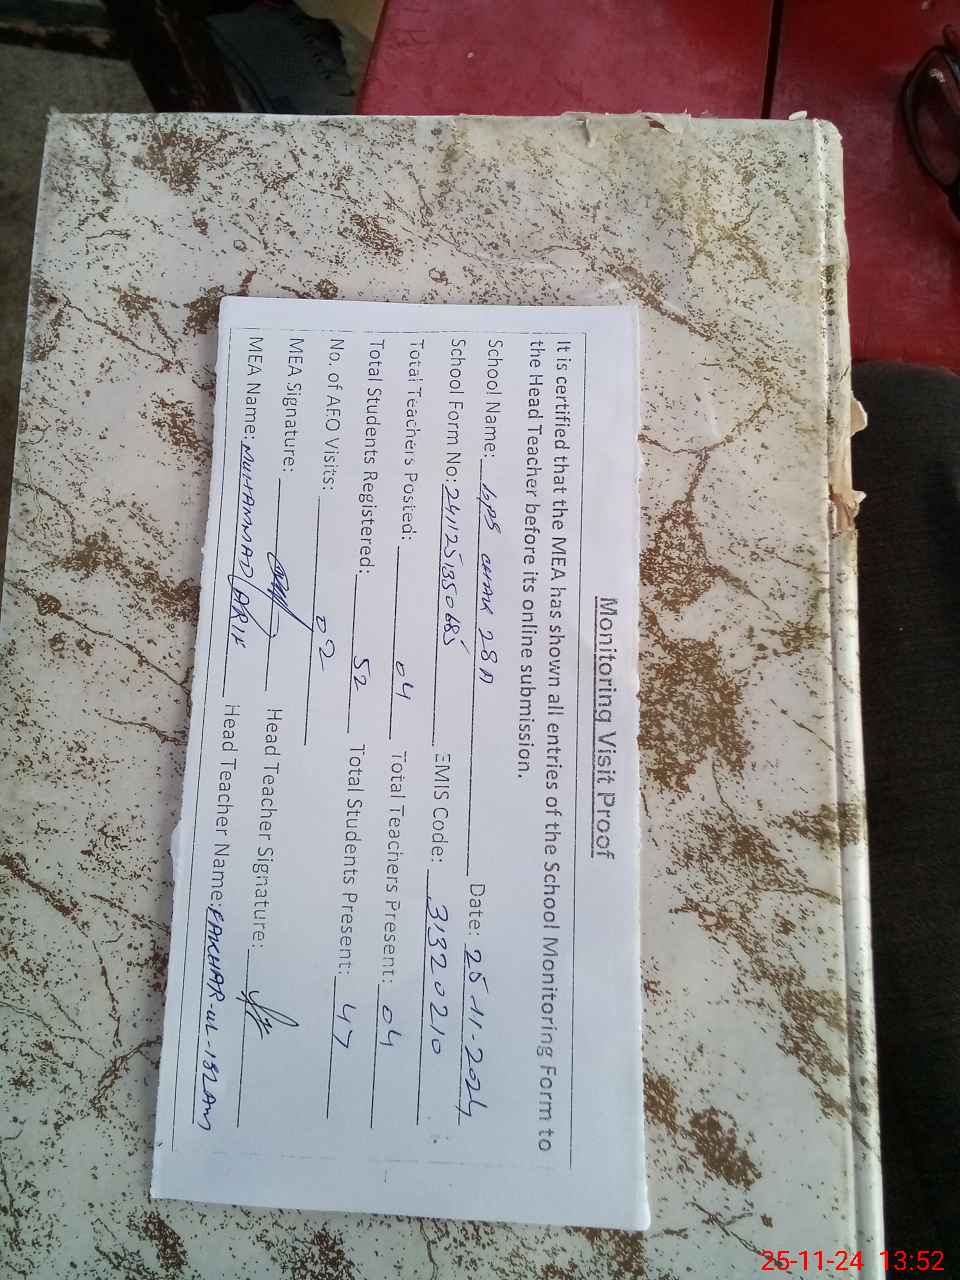 Monitoring Visit Proof
It is certified that the MEA has shown all entries of the School Monitoring Form to
the Head Teacher before its online submission.
School Name: GPS CHAK 28 A Date: 25-11-2024
School Form No: 2411251350685 EMIS Code: 31320210
Total Teachers Posted: 04 Total Teachers Present: 04
Total Students Registered: 52 Total Students Present: 47
No. of AEO Visits: 02
MEA Signature: Head Teacher Signature:
MEA Name: MUHAMMAD Head Teacher Name: FAKHAR-UL-ISLAM
25-11-24 13:52